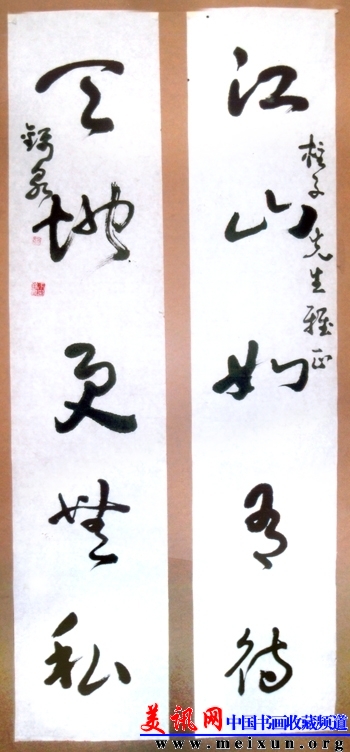 江山如有待
柱子先生雅正
天地更無私
錡泉
美讯网 中国书画收藏频道
www.meixun.org